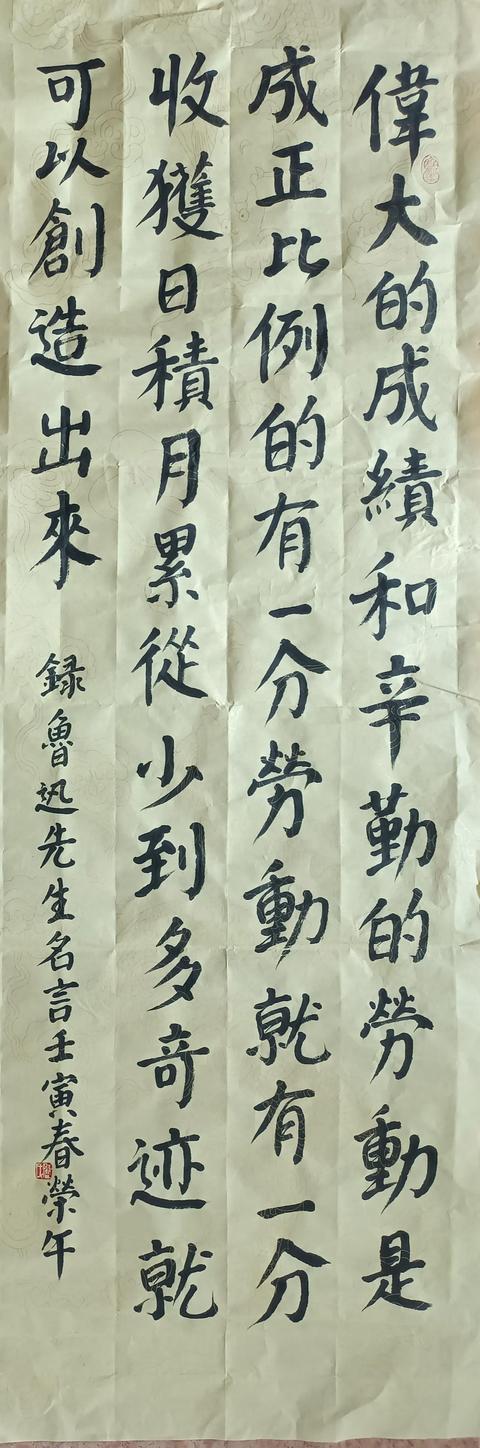 偉大的成績和辛勤的勞動是
成正比例的有一分勞動就有一分
收獲日積月累從少到多奇迹就
可以創造出來
録魯迅先生名言壬寅春榮午